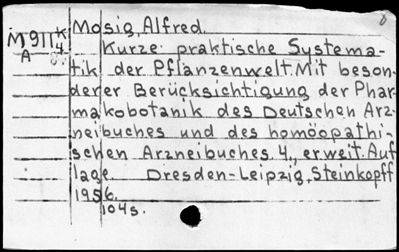 8
M911k Mosig, Alfred.
A 4 Kurze praktische Systema-
tik der Pflanzenwelt. Mit beson-
derer Berücksichtigung der Phar-
makobotanik des Deutschen Arz-
neibuches und des homöopathi-
schen Arzneibuches. 4., erweit. Auf
lage Dresden-Leipzig, Steinkopff
1956.
104s.